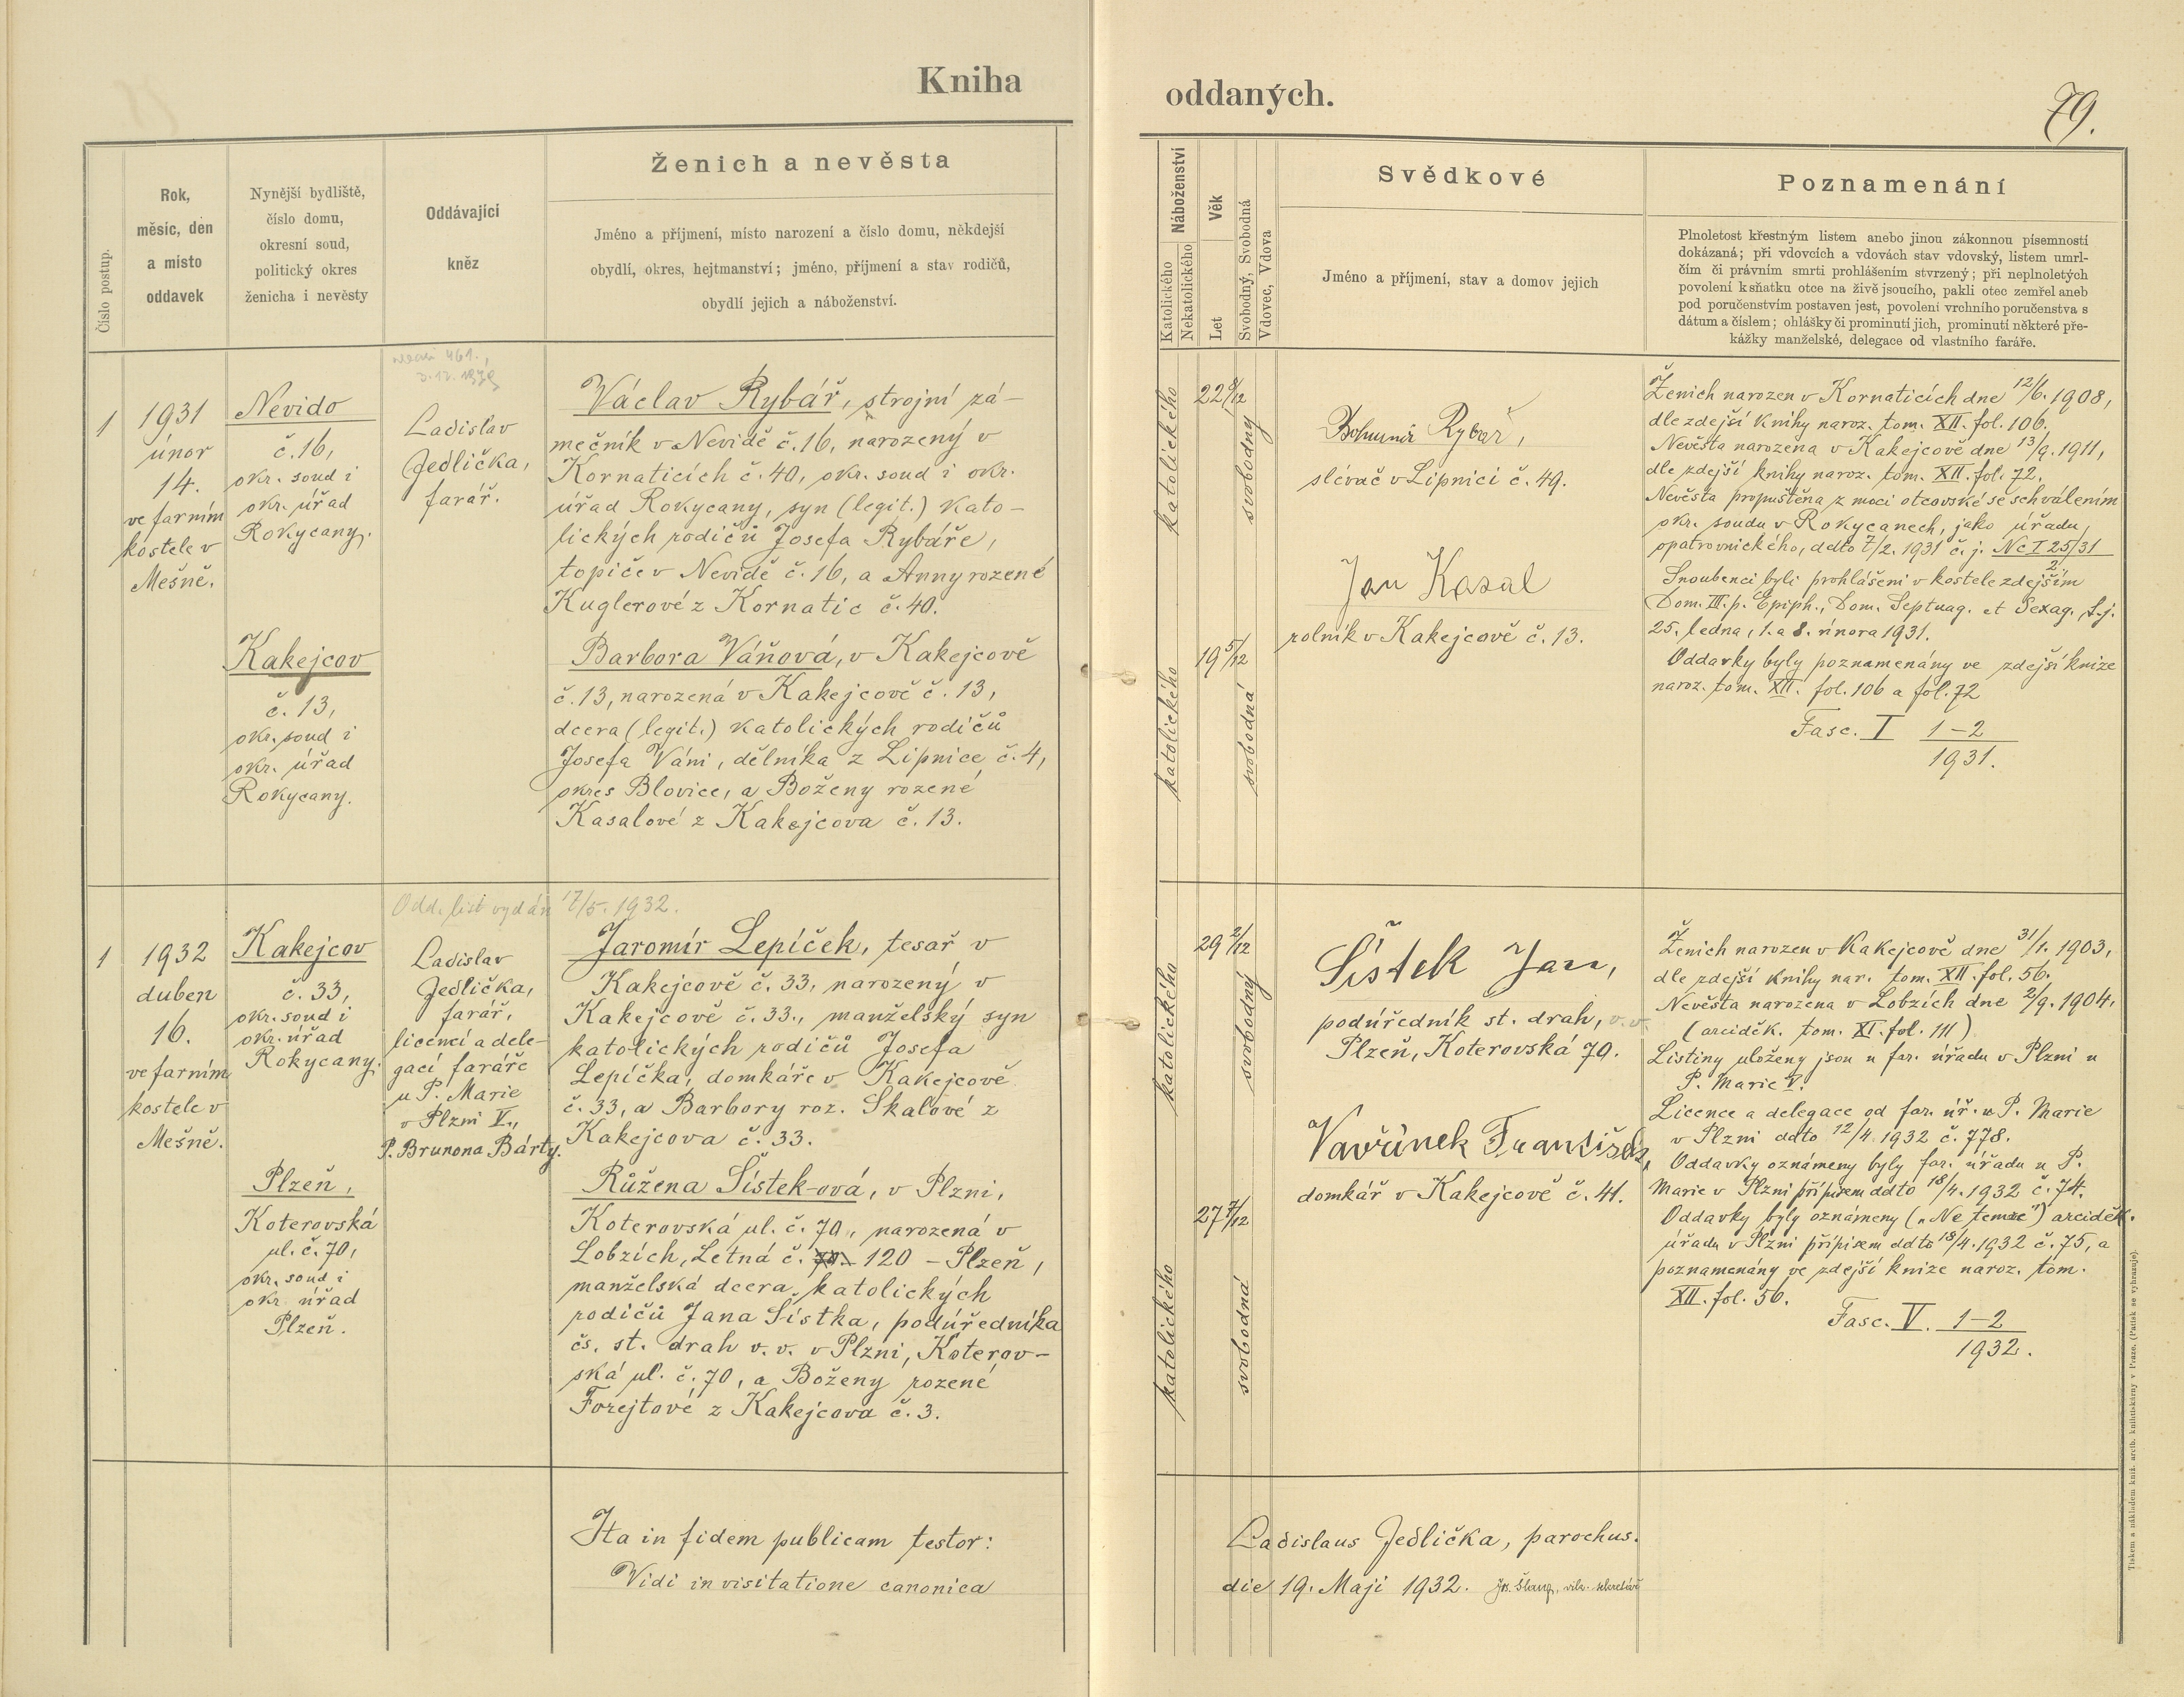 Kniha
oddaných.
79.
Číslo postup.
Rok,
měsíc, den
a místo
oddavek
Nynější bydliště,
číslo domu,
okresní soud,
politický okres
ženicha i nevěsty
Oddávající
kněz
Ženich a nevěsta
Jméno a příjmení, místo narození a číslo domu, někdejší
obydlí, okres, hejtmanství; jméno, příjmení a stav rodičů,
obydlí jejich a náboženství.
Náboženství
Katolického
Nekatolického
Věk
Let
Svobodný, Svobodná
Vdovec, Vdova
Svědkové
Jméno a příjmení, stav a domov jejich
Poznamenání
Plnoletost křestným listem anebo jinou zákonnou písemností
dokázaná; při vdovcích a vdovách stav vdovský, listem umrl-
čím či právním smrti prohlášením stvrzený; při neplnoletých
povolení k sňatku otce na živě jsoucího, pakli otec zemřel aneb
pod poručenstvím postaven jest, povolení vrchního poručenstva s
dátum a číslem; ohlášky či prominutí jich, prominutí některé pře-
kážky manželské, delegace od vlastního faráře.
1
1931
únor
14.
ve farním
kostele v
Mešně.
Nevido
č. 16,
okr. soud i
okr. úřad
Rokycany.
Kakejcov
č. 13,
okr. soud i
okr. úřad
Rokycany.
Ladislav
Jedlička,
farář.
Václav Rybář, strojní zá-
mečník v Nevidě č. 16, narozený v
Kornaticích č. 40, okr. soud i okr.
úřad Rokycany, syn (legit.) kato-
lických rodičů Josefa Rybáře,
topiče v Nevidě č. 16, a Anny rozené
Kuglerové z Kornatic č. 40.
Barbora Váňová, v Kakejcově
č. 13, narozená v Kakejcově č. 13,
dcera (legit.) katolických rodičů
Josefa Váni, dělníka z Lipnice č. 4,
okres Blovice, a Boženy rozené
Kasalové z Kakejcova č. 13.
katolického
22 8/12
svobodný
katolického
19 5/12
svobodná
Bohumír Rybář,
slévač v Lipnici č. 49.
Jan Kasal
rolník v Kakejcově č. 13.
Ženich narozen v Kornaticích dne 12/6. 1908,
dle zdejší knihy naroz. tom. XII. fol. 106.
Nevěsta narozena v Kakejcově dne 13/9. 1911,
dle zdejší knihy naroz. tom. XII. fol. 72.
Nevěsta propuštěna z moci otcovské se schválením
okr. soudu v Rokycanech, jako úřadu
opatrovnického, ddto 7/2. 1931 č. j. Nc I 25/31
2.
Snoubenci byli prohlášeni v kostele zdejším
Dom. III. p. Epiph., Dom. Septuag. et Sexag., t. j.
25. ledna, 1. a 8. února 1931.
Oddavky byly poznamenány ve zdejší knize
naroz. tom. XII. fol. 106 a fol. 72
Fasc. I 1-2
1931.
Odd. list vydán 17/5. 1932.
1
1932
duben
16.
ve farním
kostele v
Mešně.
Kakejcov
č. 33,
okr. soud i
okr. úřad
Rokycany.
Plzeň,
Koterovská
ul. č. 70,
okr. soud i
okr. úřad
Plzeň.
Ladislav
Jedlička,
farář,
licencí a dele-
gací faráře
u P. Marie
v Plzni V.,
P. Brunona Bárty.
Jaromír Lepíček, tesař v
Kakejcově č. 33, narozený v
Kakejcově č. 33., manželský syn
katolických rodičů Josefa
Lepíčka, domkáře v Kakejcově
č. 33, a Barbory roz. Skalové z
Kakejcova č. 33.
Růžena Šístek-ová, v Plzni,
Koterovská ul. č. 70., narozená v
Lobzích, Letná č. 120 - Plzeň,
manželská dcera katolických
rodičů Jana Šístka, podúředníka
čs. st. drah v. v. v Plzni, Koterov-
ská ul. č. 70, a Boženy rozené
Forejtové z Kakejcova č. 3.
katolického
29 2/12
svobodný
katolického
27 7/12
svobodná
Šístek Jan,
podúředník st. drah, v. v.
Plzeň, Koterovská 70.
Vavřinek František,
domkář v Kakejcově č. 41.
Ženich narozen v Kakejcově dne 31/1. 1903,
dle zdejší knihy nar. tom. XII. fol. 56.
Nevěsta narozena v Lobzích dne 2/9. 1904.
(arciděk. tom. XI. fol. 111)
Listiny uloženy jsou u far. úřadu v Plzni u
P. Marie V.
Licence a delegace od far. úř. u P. Marie
v Plzni ddto 12/4. 1932 č. 778.
Oddavky oznámeny byly far. úřadu u P.
Marie v Plzni přípisem ddto 18/4. 1932 č. 74.
Oddavky byly oznámeny („Ne temere“) arciděk.
úřadu v Plzni přípisem ddto 18/4. 1932 č. 75, a
poznamenány ve zdejší knize naroz. tom.
XII. fol. 56.
Fasc. V. 1-2
1932.
Ita in fidem publicam testor:
Ladislaus Jedlička, parochus.
Vidi in visitatione canonica
die 19. Maji 1932.
Tiskem a nákladem kníž. arcib. knihtiskárny v Praze. (Patisk se vyhrazuje).